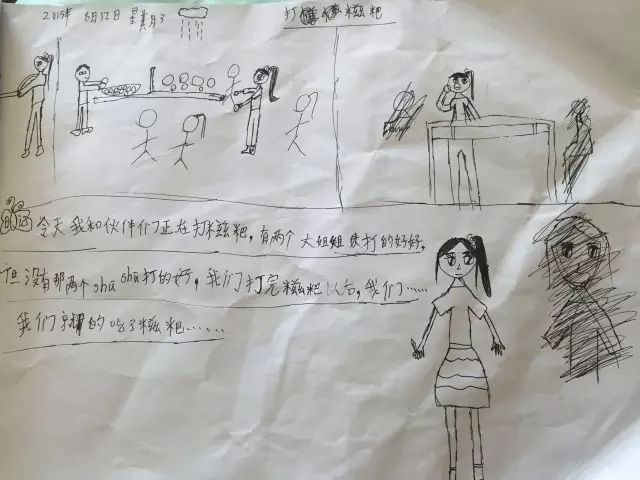 2015年 8月12日 星其月3
打糍粑
日记
今天我和伙伴们正在打糍粑,有两个大姐姐打的好好,
但没有那两个shū shū打的好,我们打完糍粑以后,我们……
我们的吃了糍粑……